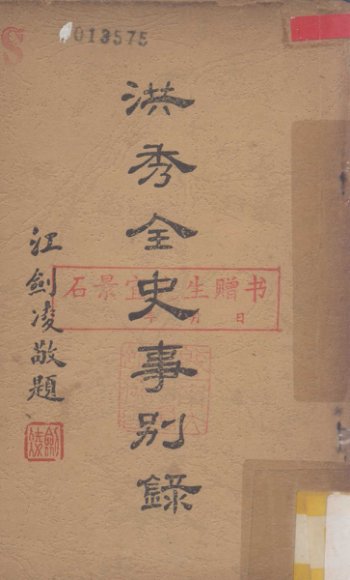 013575
洪秀全史事別錄
江劍凌敬題
石景宜先生贈书
年 月 日